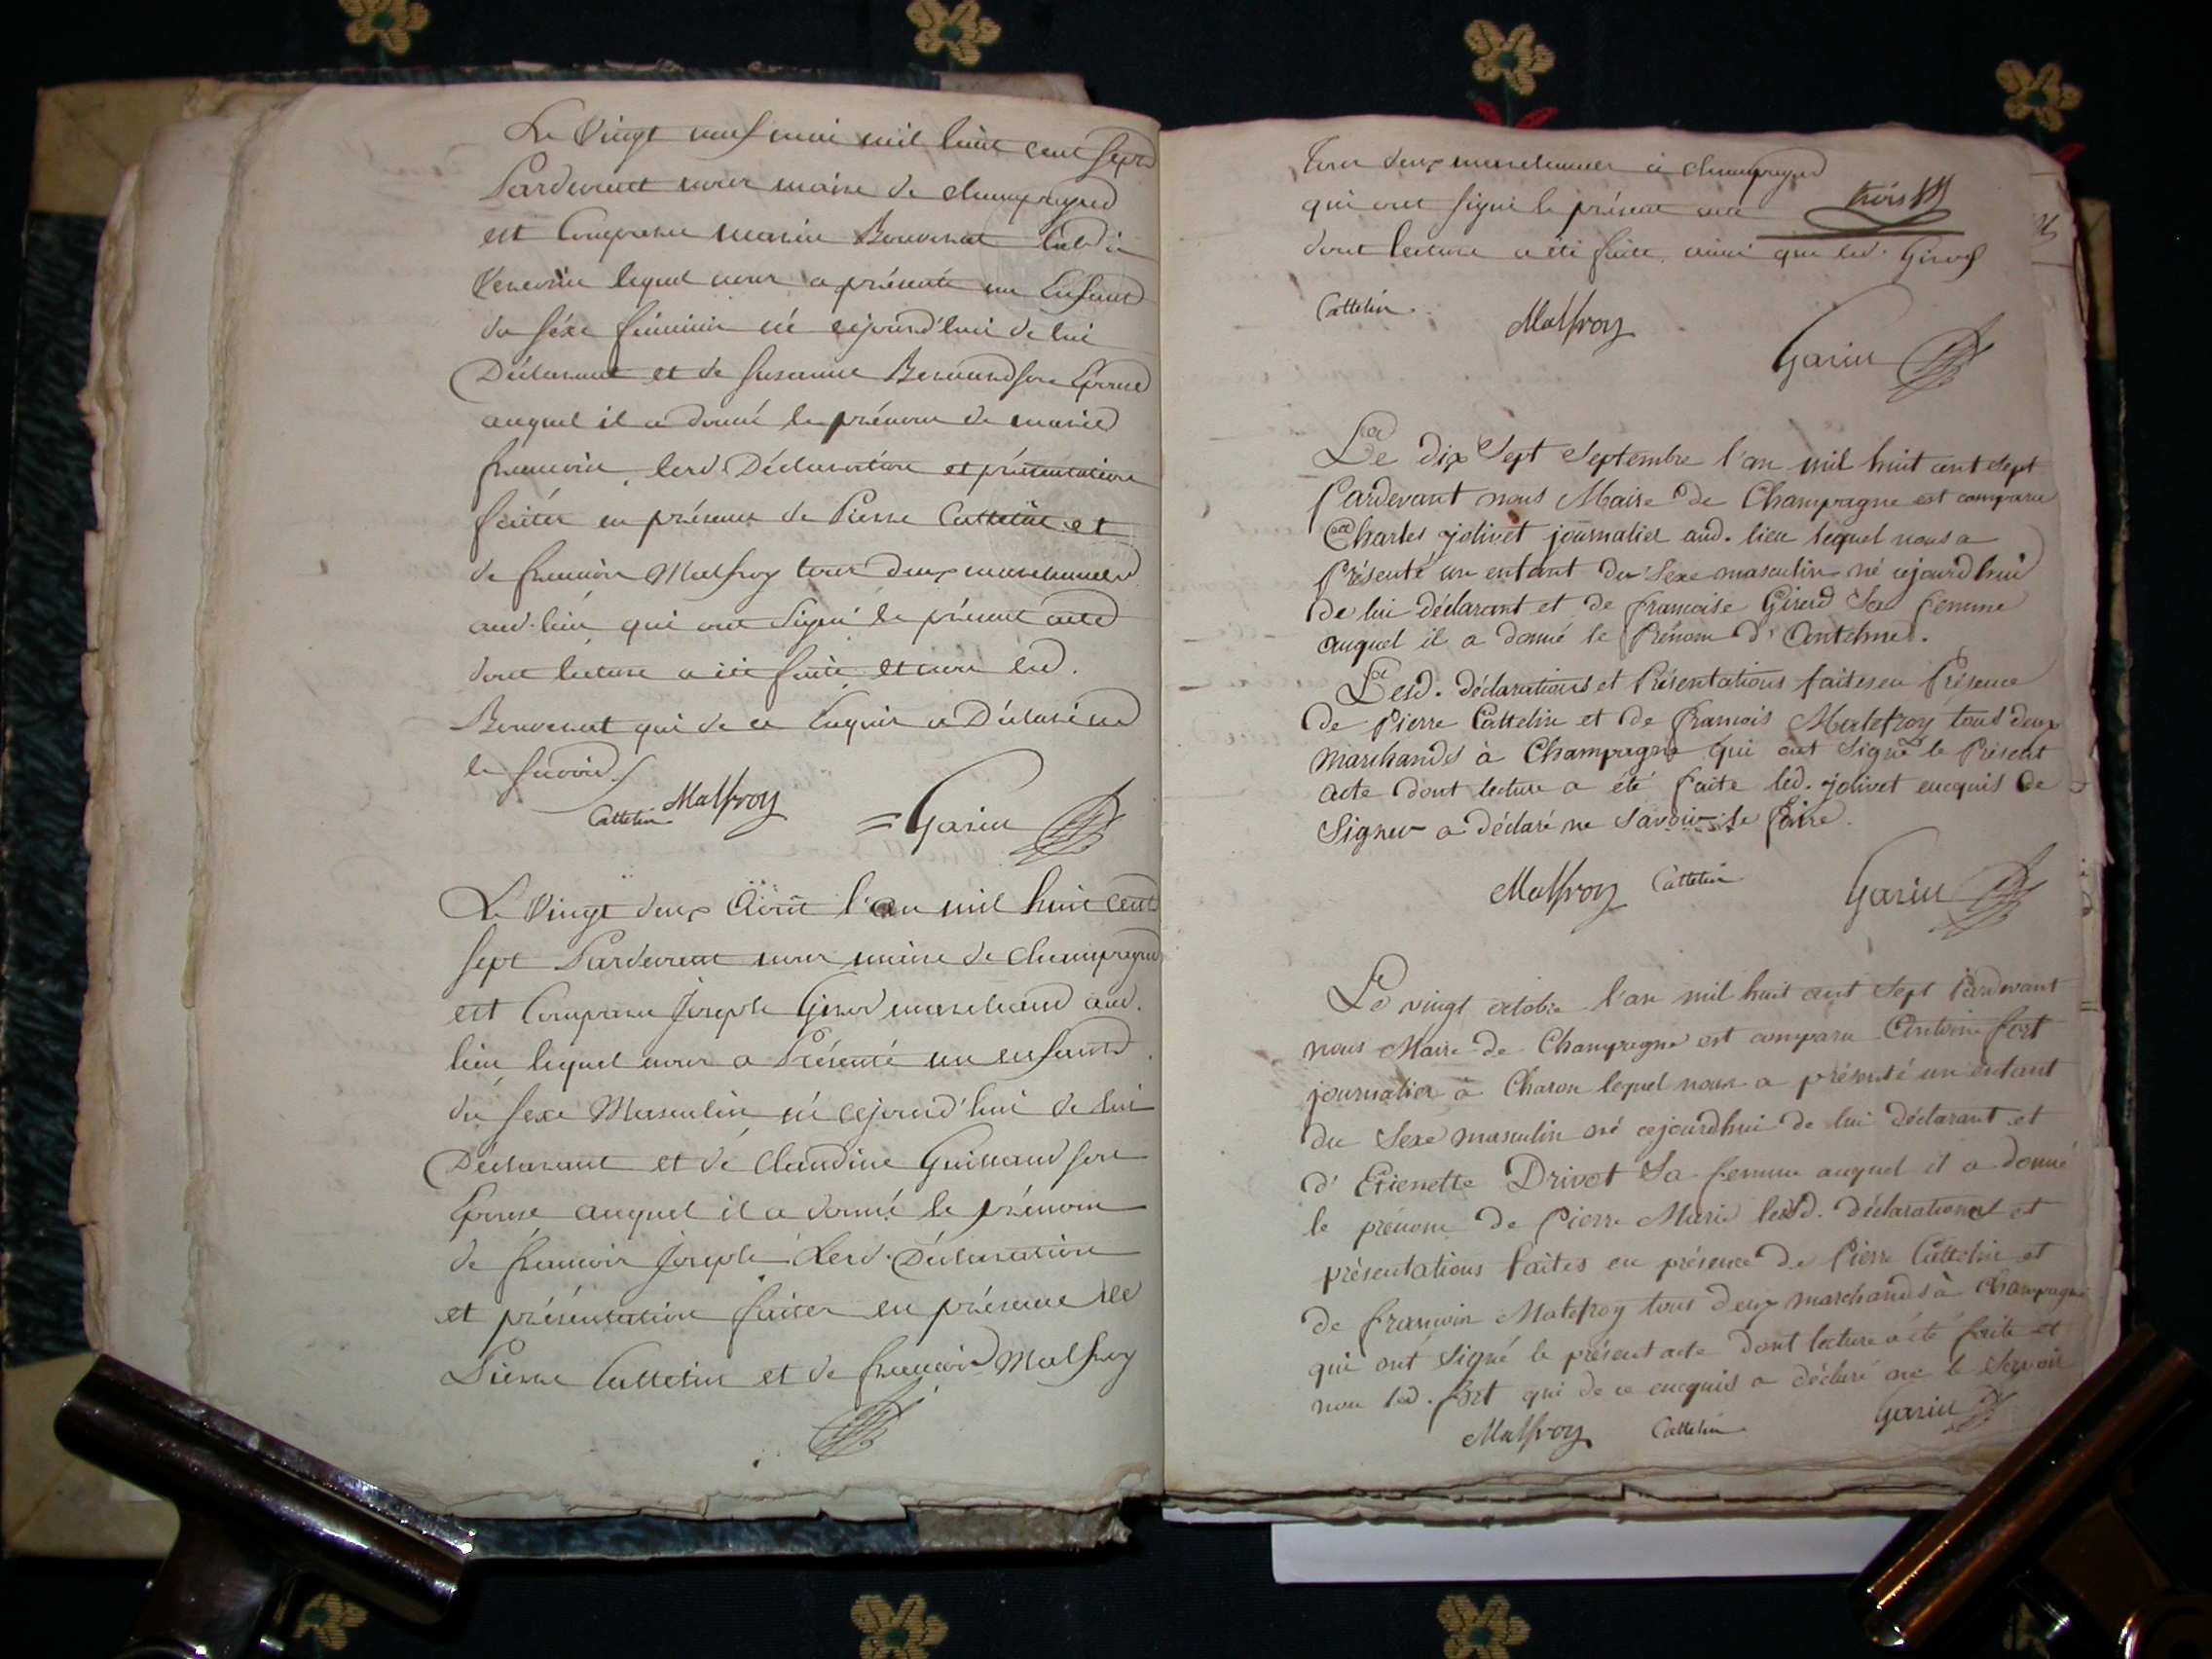 Le Vingt neuf mai mil huit cent sept
Pardevant nous maire de champagne
est Comparu marin Bouvenat
lequel nous a présenté un Enfant
du séxe féminin né cejourd'hui de lui
Déclarant et de susanne son Epouse
auquel il a donné le prénom de marie
francoise lesd. Déclaration et présentation
faites en présence de Pierre Cattelin et
de francois Malfroy tous deux marchands
aud. lieu qui ont signé le présent acte
dont lecture a été faite et non led.
Bouvenat qui de ce Enquis a Déclaré ne
le savoir
Cattelin Malfroy = Garin
Le Vingt deux Août l'an mil huit cent
sept Pardevant nous maire de champagne
est Comparu Joseph Girod marchand aud.
lieu lequel nous a Présenté un enfant
du sexe Masculin né cejourd'hui de lui
Déclarant et de Claudine Guillaud son
Epouse auquel il a donné le prénom
de francois Joseph Lesd. Déclaration
et présentation faites en présence de
Pierre Cattelin et de francois Malfroy
tous deux marchands à champagne
qui ont signé le présent acte
dont lecture a été faite, ainsi que led. Girod
Cattelin Malfroy
Garin
Le dix Sept Septembre l'an mil huit cent sept
Pardevant nous Maire de Champagne est comparu
Charles jolivet journalier aud. lieu lequel nous a
Présenté un enfant du Sexe masculin né cejourdhui
De lui déclarant et de francoise Girod Sa femme
auquel il a donné le Prénom d'Anthelme.
Lesd. déclarations et Présentations faites en Présence
de Pierre Cattelin et de francois Malefroy tous deux
marchands à Champagne qui ont Signé le Présent
acte dont lecture a été faite led. jolivet enequis de
Signer a déclaré ne Savoir le faire.
Malfroy Cattelin Garin
Le vingt octobre l'an mil huit cent Sept Pardevant
nous Maire de Champagne est comparu Antoine fort
journalier à Charon lequel nous a présenté un enfant
du Sexe masculin né cejourdhui de lui Déclarant et
d'Etienette Drivot Sa femme auquel il a donné
le prénom de Pierre Marie lesd. déclarations et
présentations faites en présence de Pierre Cattelin et
de francois Malefroy tous deux marchands à Champagne
qui ont Signé le présent acte Dont lecture a été faite et
non led. fort qui de ce enequis a déclaré ne le Savoir
Malfroy Cattelin Garin